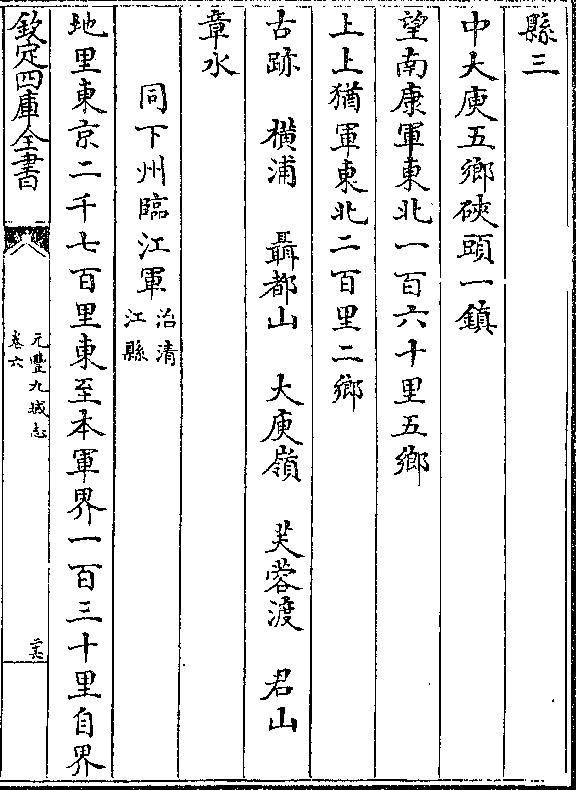 縣三
中大庾五鄉硤頭一鎮
望南康軍東北一百六十里五鄉
上上猶軍東北二百里二鄉
古跡　橫浦　聶都山　大庾嶺　芙蓉渡　君山
章水
同下州臨江軍治清江縣
地里東京二千七百里東至本軍界一百三十里自界
欽定四庫全書
元豐九域志
卷六